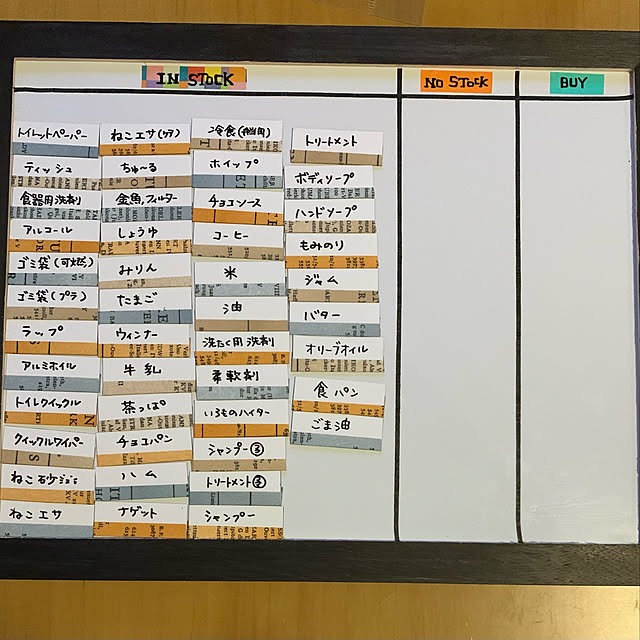 IN STOCK
NO STOCK
BUY
トイレットペーパー
ティッシュ
食器用洗剤
アルコール
ゴミ袋(可燃)
ゴミ袋(プラ)
ラップ
アルミホイル
トイレクイックル
クイックルワイパー
ねこ砂
ねこエサ
ねこエサ(ウラ)
ちゅ〜る
金魚,フィルター
しょうゆ
みりん
たまご
ウィンナー
牛乳
茶っぱ
チョコパン
ハム
ナゲット
冷食(弁当用)
ホイップ
チョコソース
コーヒー
米
油
洗たく用洗剤
柔軟剤
いろものハイター
シャンプー
トリートメント
シャンプー
トリートメント
ボディソープ
ハンドソープ
もみのり
ジャム
バター
オリーブオイル
食パン
ごま油